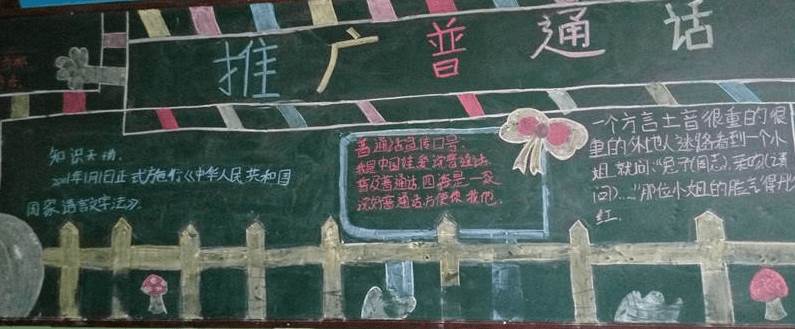 推广普通话
知识天地.
2001年1月1日正式施行《中华人民共和国
国家语言文字法》.
普通话宣传口号.
我是中国娃 爱说普通话.
普及普通话 四海是一家
说好普通话 方便你我他.
一个方言土音很重的很
重的外地人迷路看到一个小
姐 就问
那位小姐的脸气得
红.